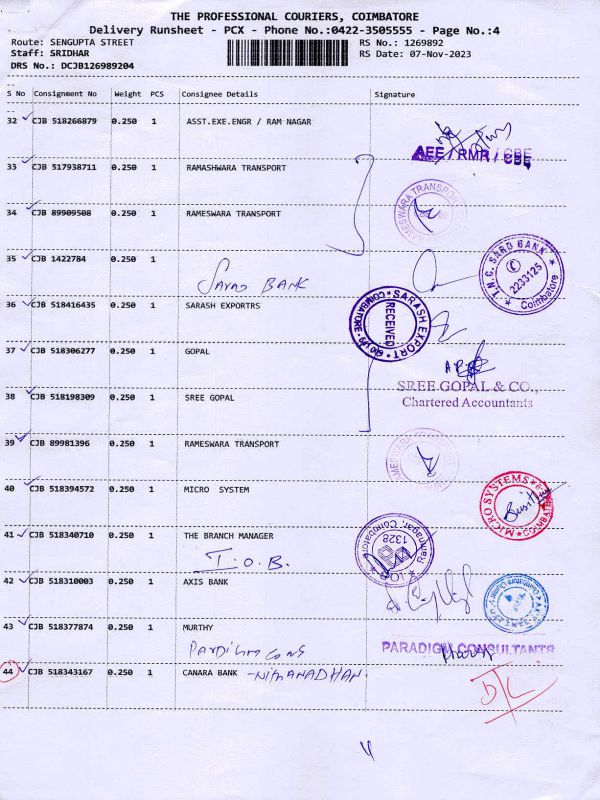 THE PROFESSIONAL COURIERS, COIMBATORE
Delivery Runsheet - PCX - Phone No.:0422-3505555 - Page No.:4
Route: SENGUPTA STREET
RS No.: 1269892
Staff: SRIDHAR
RS Date: 07-Nov-2023
DRS No.: DCJB126989204
S No Consignment No Weight PCS Consignee Details Signature
32 CJB 518266879 0.250 1 ASST.EXE.ENGR / RAM NAGAR
AEE / RMR / CBE
33 CJB 517938711 0.250 1 RAMASHWARA TRANSPORT
34 CJB 89909508 0.250 1 RAMESWARA TRANSPORT
35 CJB 1422784 0.250 1
BANK
BANK
2233125
Coimbatore
36 CJB 518416435 0.250 1 SARASH EXPORTRS
SARASH EXPORT
RECEIVED
37 CJB 518306277 0.250 1 GOPAL
38 CJB 518198309 0.250 1 SREE GOPAL
SREE GOPAL & CO.,
Chartered Accountants
39 CJB 89981396 0.250 1 RAMESWARA TRANSPORT
40 CJB 518394572 0.250 1 MICRO SYSTEM
MICRO SYSTEMS
COIMBATORE
41 CJB 518340710 0.250 1 THE BRANCH MANAGER
I.O.B.
Ramnagar, Coimbatore
1328
IOB
42 CJB 518310003 0.250 1 AXIS BANK
43 CJB 518377874 0.250 1 MURTHY
PARADIGM CONSULTANTS
44 CJB 518343167 0.250 1 CANARA BANK
D/L